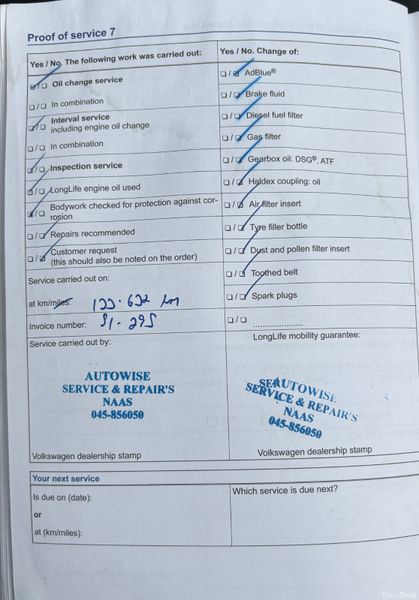 Proof of service 7
Yes / No. The following work was carried out:
Oil change service
In combination
Interval service
including engine oil change
In combination
Inspection service
LongLife engine oil used
Bodywork checked for protection against cor-
rosion
Repairs recommended
Customer request
(this should also be noted on the order)
Service carried out on:
at km/miles:
km
Invoice number:
Service carried out by:
AUTOWISE
SERVICE & REPAIR'S
NAAS
045-856050
Volkswagen dealership stamp
Yes / No. Change of:
AdBlue®
Brake fluid
Diesel fuel filter
Gas filter
Gearbox oil: DSG®, ATF
Haldex coupling: oil
Air filter insert
Tyre filler bottle
Dust and pollen filter insert
Toothed belt
Spark plugs
LongLife mobility guarantee:
AUTOWISE
SERVICE & REPAIR'S
NAAS
045-856050
Volkswagen dealership stamp
Your next service
Is due on (date):
or
at (km/miles):
Which service is due next?